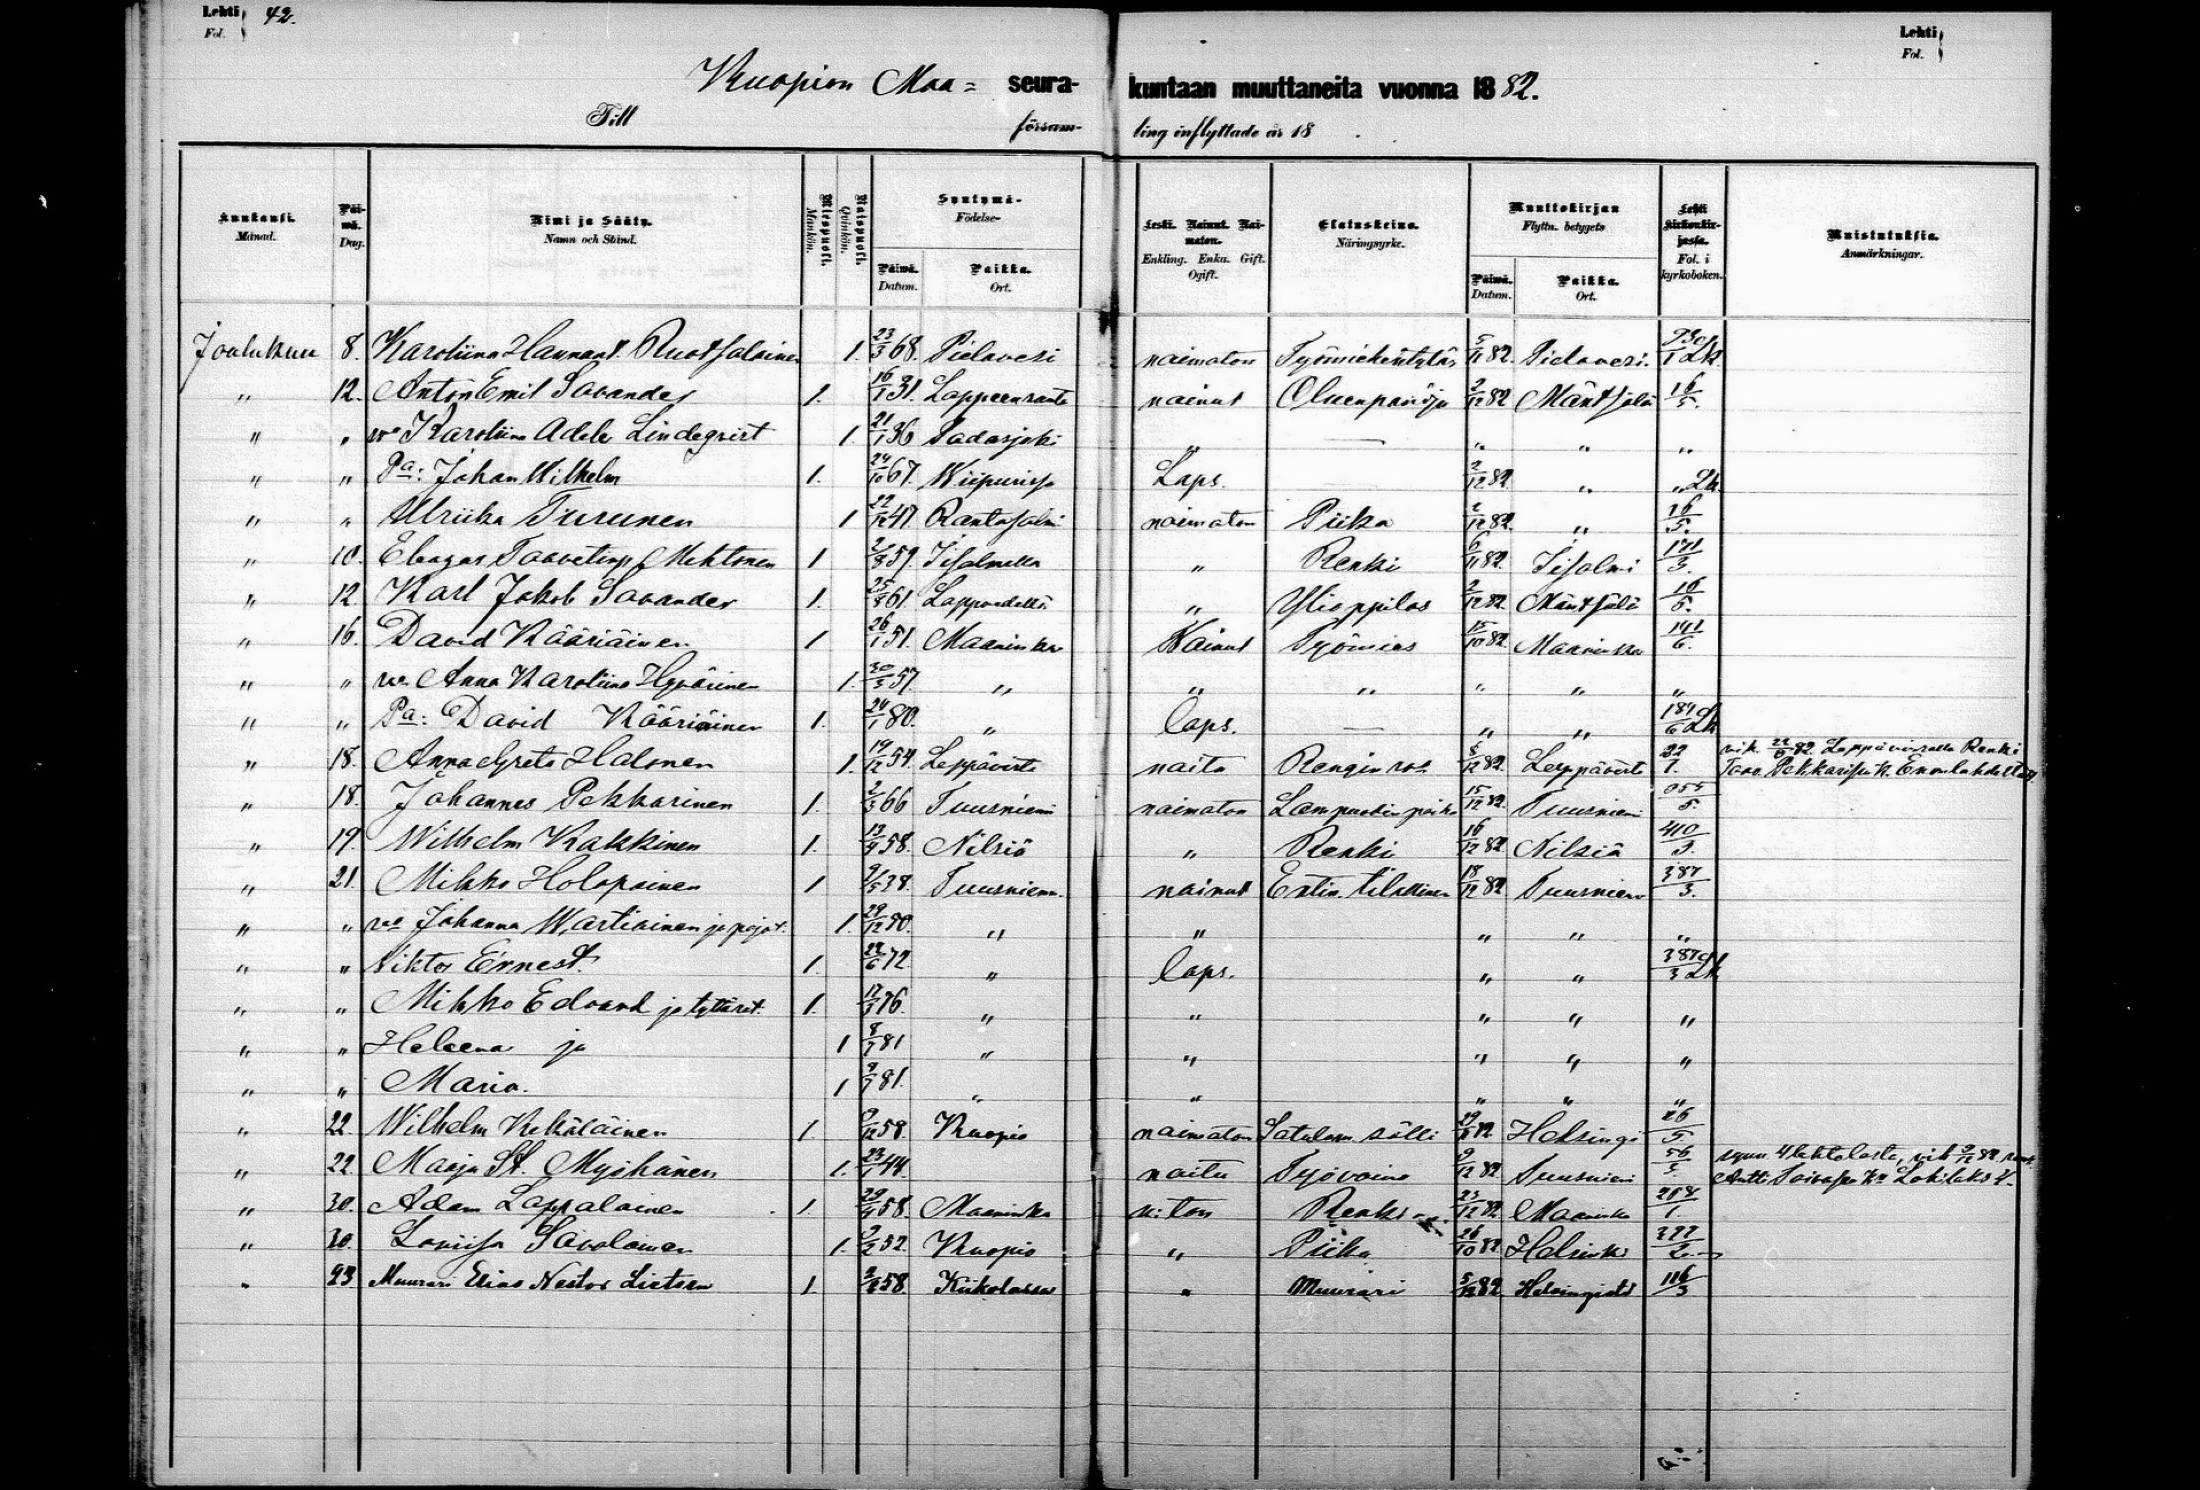 Lehti 42. Lehti
Fol. Fol.
Kuopion Maa= seura- kuntaan muuttaneita vuonna 1882.
Till församling inflyttade år 18 .
Kuukausi. Månad. Päiwä. Dag. Nimi ja Sääty. Namn och Stånd. Miespuoli. Mankön. Naispuoli. Qvinkön. Syntymä- Födelse- Päiwä. Datum. Paikka. Ort. Leski. Nainut. Naimaton. Enkling. Enka. Gift. Ogift. Elatuskeino. Näringsyrke. Muuttokirjan Flyttn. betygets Päiwä. Datum. Paikka. Ort. Lehti kirkonkirjassa. Fol. i kyrkoboken. Muistutuksia. Anmärkningar.
Joulukuu 8. Karoliina Ruotsalainen 1. 23/3 68. Pielavesi naimaton 5/11 82. Pielavesi. Lk
" 12. Anton Emil Savander 1. 16/1 31. Lappeenranta nainut Oluenpanija 2/12 82 Mäntsälä 16/5.
" " wo Karoliina Adele Lindeqvist 1. 21/1 36 Padasjoki " — " " "
" " Pa: Johan Wilhelm 1. 24/10 67. Wiipurissa Laps. — 2/12 82 " " Lk.
" " Ulriika Turunen 1 22/12 47. Rantasalmi naimaton Piika 2/12 82. " 16/5.
" 10. Taavetinp. Mehtonen 1 2/8 59. Iisalmella " Renki 6/11 82. Iisalmi 171/3.
" 12. Karl Jakob Savander 1. 25/8 61. " Ylioppilas 2/12 82. Mäntsälä 16/5.
" 16. David Kääriäinen 1 26/1 51. Maaninka Nainut Työmies 15/10 82. Maaninka 141/6.
" " wo. Anna Karoliina Hyvärinen 1. 30/5 57. " " " " " "
" " Pa: David Kääriäinen 1. 24/1 80. " laps. — " " Lk
" 18. Anna Greta Halonen 1. 19/12 54. Leppävirta naitu Rengin wo 8/12 82. Leppävirta 22/1. vih. 82. Leppävirralla Renki
Taav.
" 18. Johannes Pekkarinen 1. 2/3 66 Tuusniemi naimaton 15/12 82. Tuusniemi
" 19. Wilhelm Kakkinen 1. 13/4 58. Nilsiä " Renki 16/12 82. Nilsiä 410/3.
" 21. Mikko Holopainen 1 9/5 38. Tuusniemi. nainut Entin. tilallinen 18/12 82 Tuusniemi 387/3.
" " wo Johanna Wartiainen ja pojat. 1. 29/12 50. " " " " "
" " Viktor Ernest. 1. 22/6 72. " laps. " " 387/3 Lk
" " Mikko Edvard ja tyttäret. 1. 17/3 76. " " " " "
" " Heleena ja 1 8/7 81 " " " " "
" " Maria. 1 8/7 81. " " " " "
" 22. Wilhelm Kekäläinen 1. 58. Kuopio naimaton Satulam. sälli 82. Helsingi 26/5
" 22. Maaja St. Myöhänen 1. 23/1 44. naitu Työvaimo 9/12 82. Tuusniemi 56/5. synn. 82
Antti
" 30. Adam Lappalainen 1. 58. Maaninka n:ton Renki 23/12 82. Maaninka
" 30. Loviisa Savolainen 1. 2/2 52. Kuopio " Piika 26/10 82. Helsinki
" 23. Muurari Elias Nestor 1. 58. " Muurari 5/12 82. Helsingistä 116/3